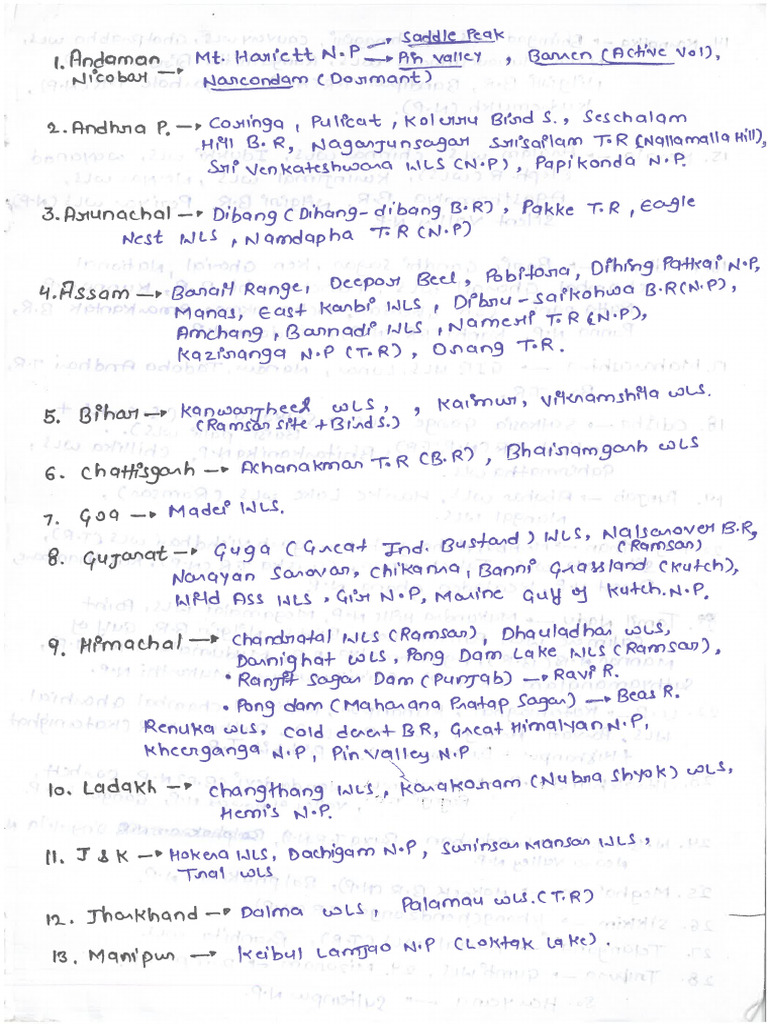 1. Andaman Nicobar → Mt. Hariett N.P → Saddle Peak
→ Ain valley, Barren (Active Vol),
Narcondam (Dormant)
2. Andhra P. → Coringa, Pulicat, Kolerru Bird S., Seschalam
Hill B.R, Nagarjunsagar Srisailam T.R (Nallamalla Hill),
Sri Venkateshwara WLS (N.P), Papikonda N.P.
3. Arunachal → Dibang (Dihang-dibang B.R), Pakke T.R, Eagle
Nest WLS, Namdapha T.R (N.P)
4. Assam → Barail Range, Deepor Beel, Pobitora, Dihing Patkai N.P,
Manas, East Karbi WLS, Dibru-Saikohwa B.R (N.P),
Amchang, Barnadi WLS, Nameri T.R (N.P),
Kaziranga N.P (T.R), Orang T.R.
5. Bihar → Kanwarjheel WLS, , Kaimur, Vikramshila WLS.
(Ramsar site + Bird S.)
6. Chattisgarh → Achanakmar T.R (B.R), Bhairamgarh WLS
7. Goa → Madei WLS.
8. Gujarat → Guga (Great Ind. Bustard) WLS, Nalsarover B.R,
(Ramsar)
Narayan Sarovar, Chikarna, Banni Grassland (Kutch),
Wild Ass WLS, Gir N.P, Marine Gulf of Kutch. N.P.
9. Himachal → Chandratal WLS (Ramsar), Dhauladhar WLS,
Darnighat WLS, Pong Dam Lake WLS (Ramsar),
• Ranjit Sagar Dam (Punjab) → Ravi R.
• Pong dam (Maharana Pratap Sagar) → Beas R.
Renuka WLS, cold desert BR, Great Himalyan N.P,
Kheerganga N.P, Pin valley N.P
10. Ladakh → changthang WLS, Karakoram (Nubra Shyok) WLS,
Hemis N.P.
11. J & K → Hokera WLS, Dachigam N.P, Surinsar Mansar WLS,
Tral WLS
12. Jharkhand → Dalma WLS, Palamau WLS. (T.R)
13. Manipur → Keibul Lamjao N.P (Loktak Lake).